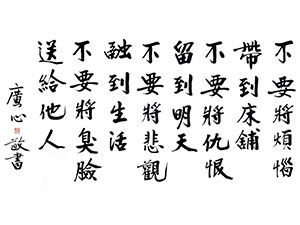 不要將煩惱
帶到床鋪
不要將仇恨
留到明天
不要將悲觀
融到生活
不要將臭臉
送給他人
廣心敬書